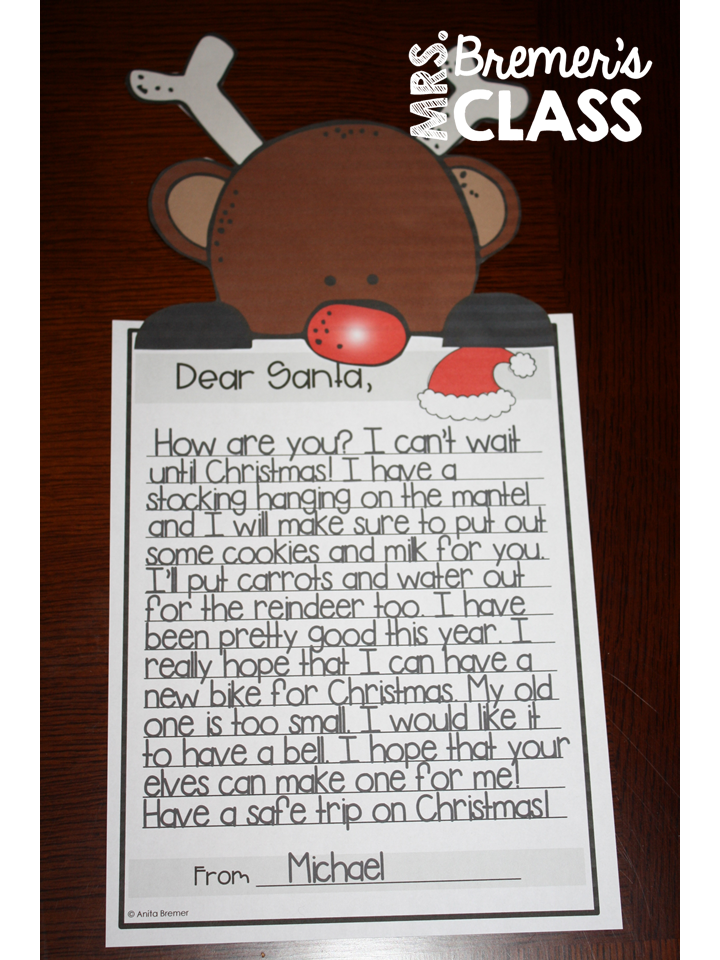 MRS. Bremer's
CLASS
Dear Santa,
How are you? I can't wait
until Christmas! I have a
stocking hanging on the mantel
and I will make sure to put out
some cookies and milk for you.
I'll put carrots and water out
for the reindeer too. I have
been pretty good this year. I
really hope that I can have a
new bike for Christmas. My old
one is too small. I would like it
to have a bell. I hope that your
elves can make one for me!
Have a safe trip on Christmas!
From Michael
© Anita Bremer